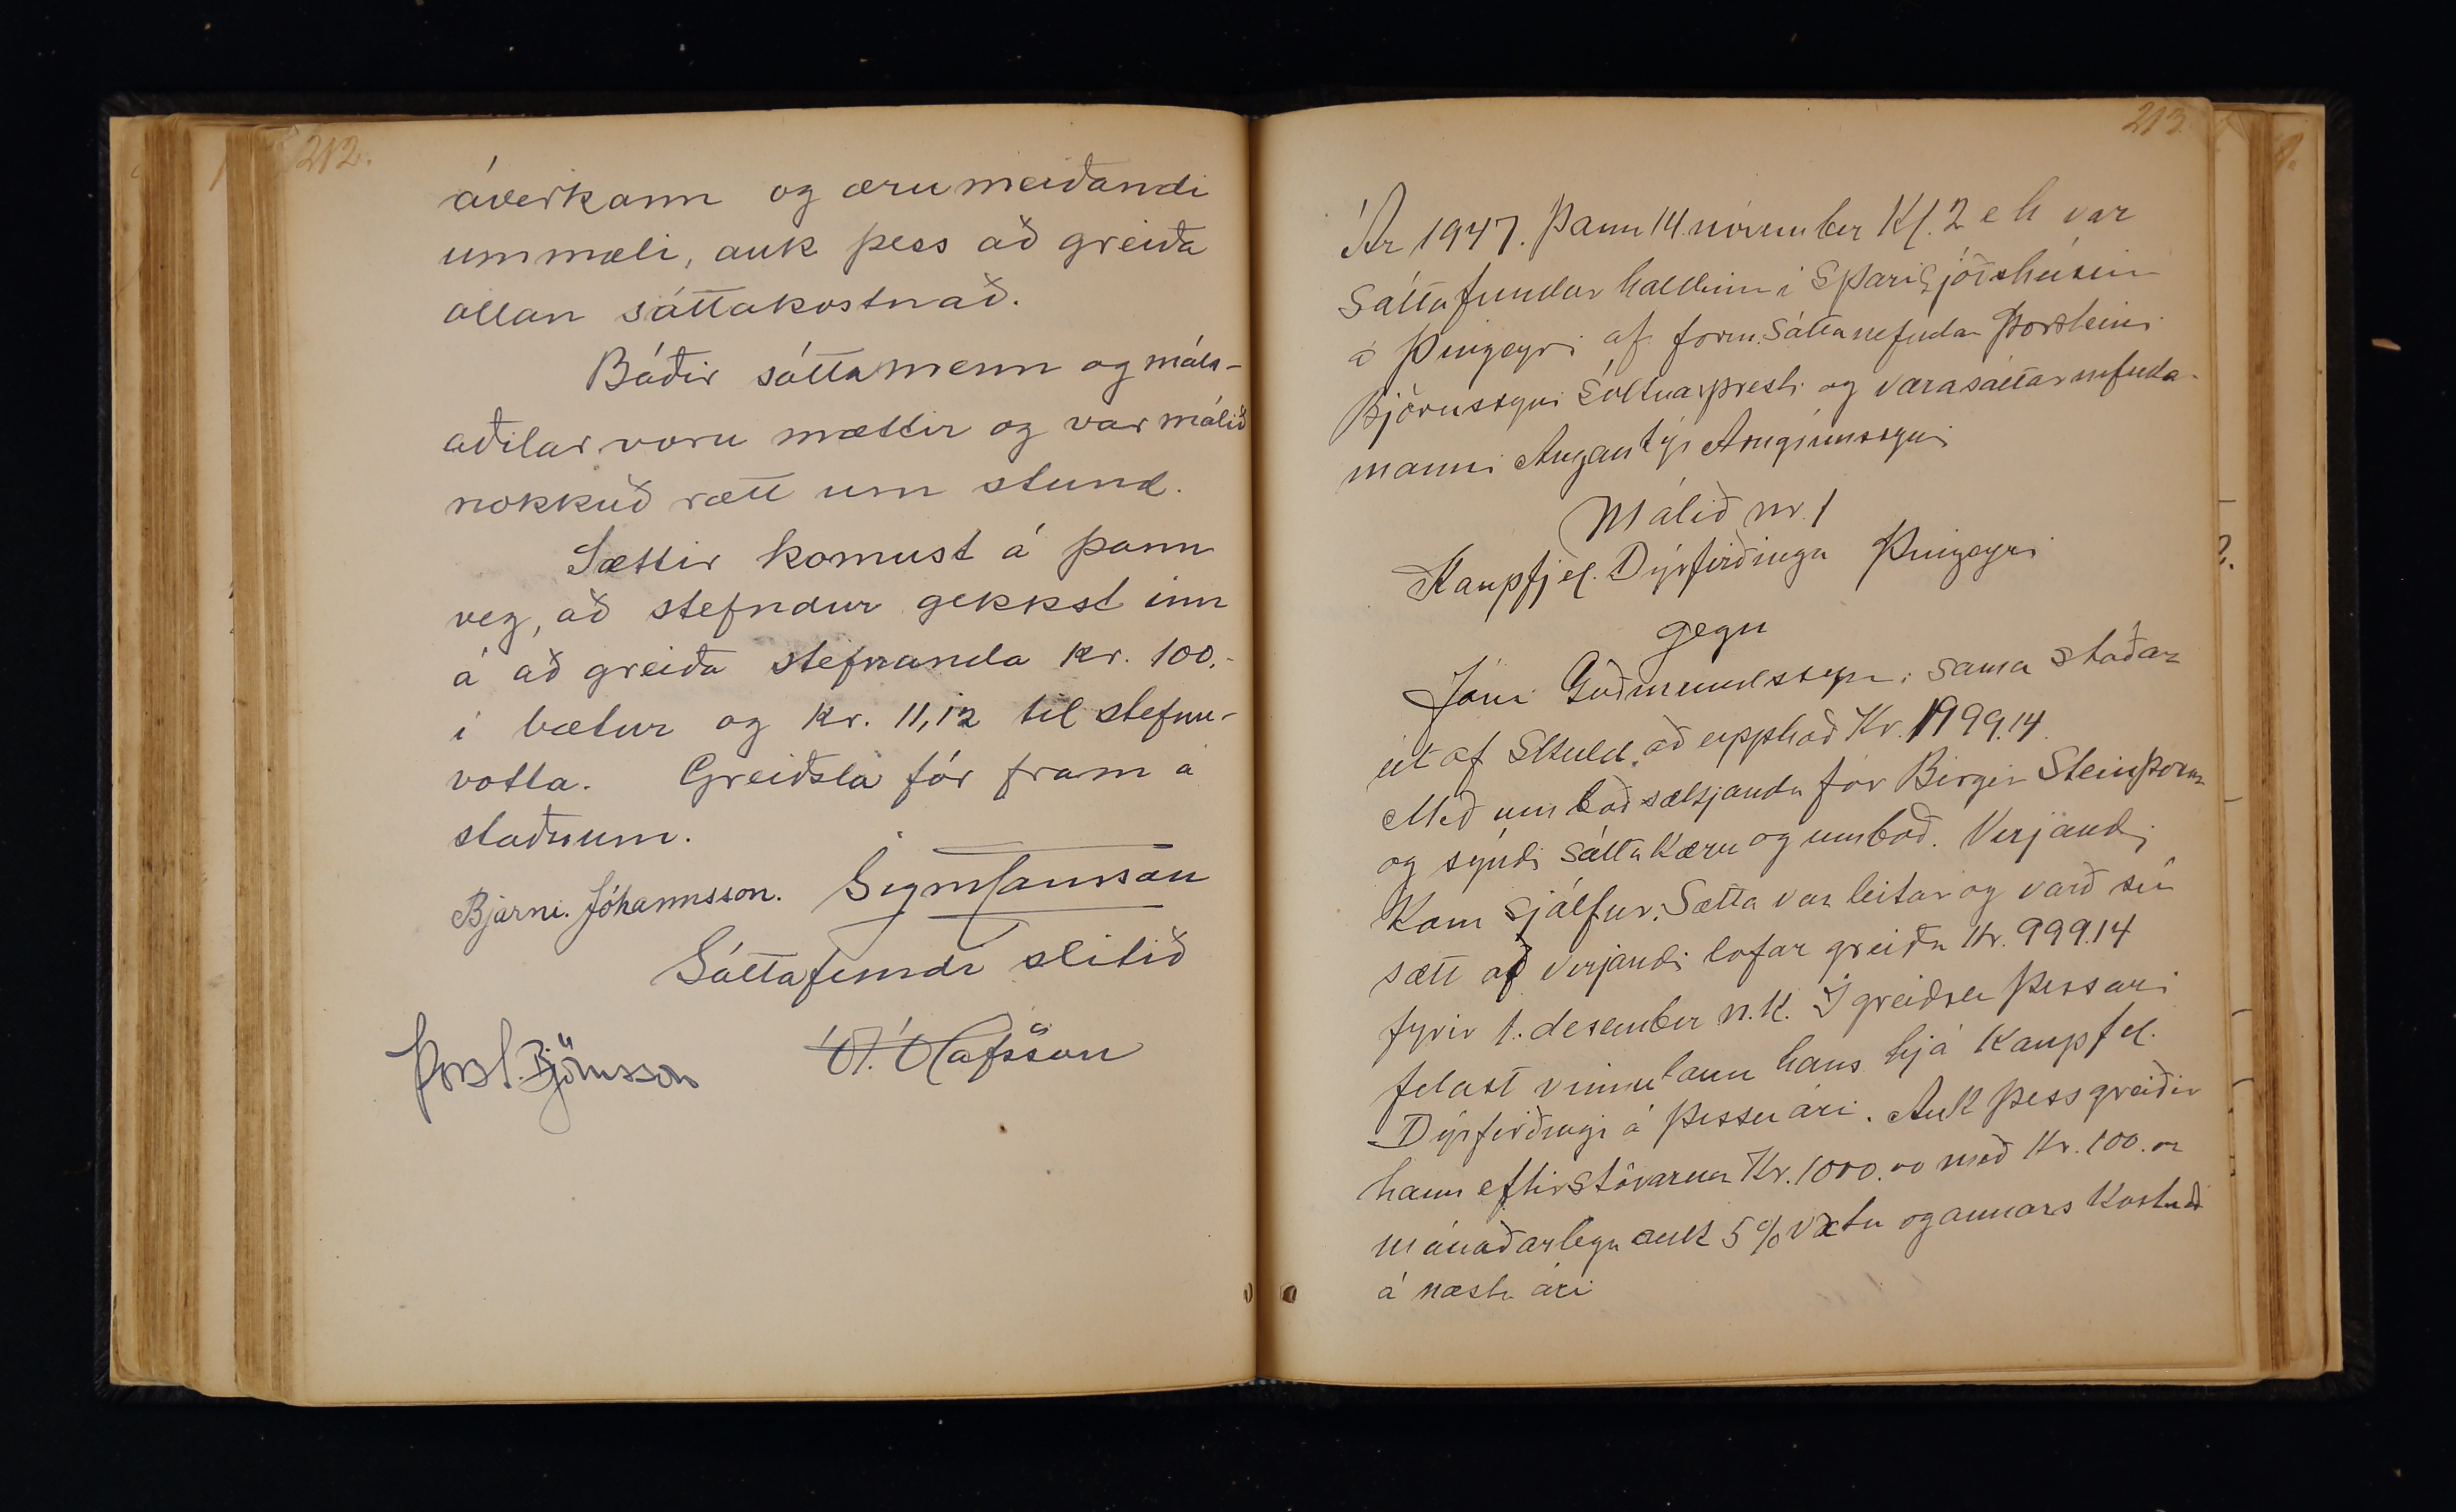 212.
áverkann og ærumeiðandi
ummæli, auk þess að greiða
allan sáttakostnað.
Báðir sáttamenn og máls-
aðilar voru mættir og var málið
nokkuð rætt um stund.
Sættir komust á þann
veg, að stefndur gekkst inn
á að greiða stefnanda kr. 100.-
í bætur og kr. 11,12 til stefnu-
votta. Greiðsla fór fram á
staðnum.
Bjarni. Jóhannsson.
Sáttafundi slitið
Þorst. Björnsson Ó. Ólafsson
213.
Ár 1947. Þann 14. nóvember Kl. 2 e h var
Sáttafundur haldinn í Sparisjóðshúsinu
á Þingeyri af form. Sáttanefndar Þorsteini
Björnssyni Sóknarpresti og varasáttanefnda-
manni Angantý Arngrímssyni
Málið nr. 1
Kaupfjel. Dýrfirðinga Þingeyri
gegn
Jóni Guðmundssyni sama staðar
út af Skuld að upphæð Kr. 1999.14.
Með umboð sækjanda fór Birgir Steinþórss
og sýndi Sáttakæru og umboð. Verjandi
Kom sjálfur. Sætta var leitað og varð sú
sætt að verjandi lofar greiða Kr. 999.14
fyrir 1. desember n.k. Í greiðslu þessari
felast vinnulaun hans hjá Kaupfel.
Dýrfirðinga á þessu ári. Auk þess greiðir
hann eftirstöðvarnar Kr. 1000.00 með Kr. 100.00
mánaðarlega auk 5% vöxtu og annars Kostnað
á næsta ári